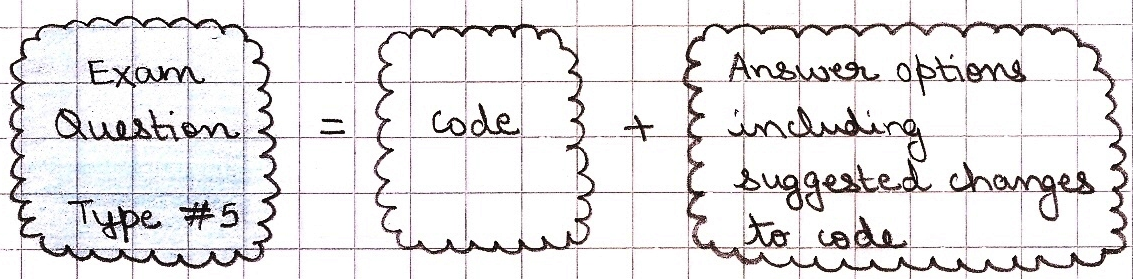 Exam
Question
Type #5
=
code
+
Answer options
including
suggested changes
to code